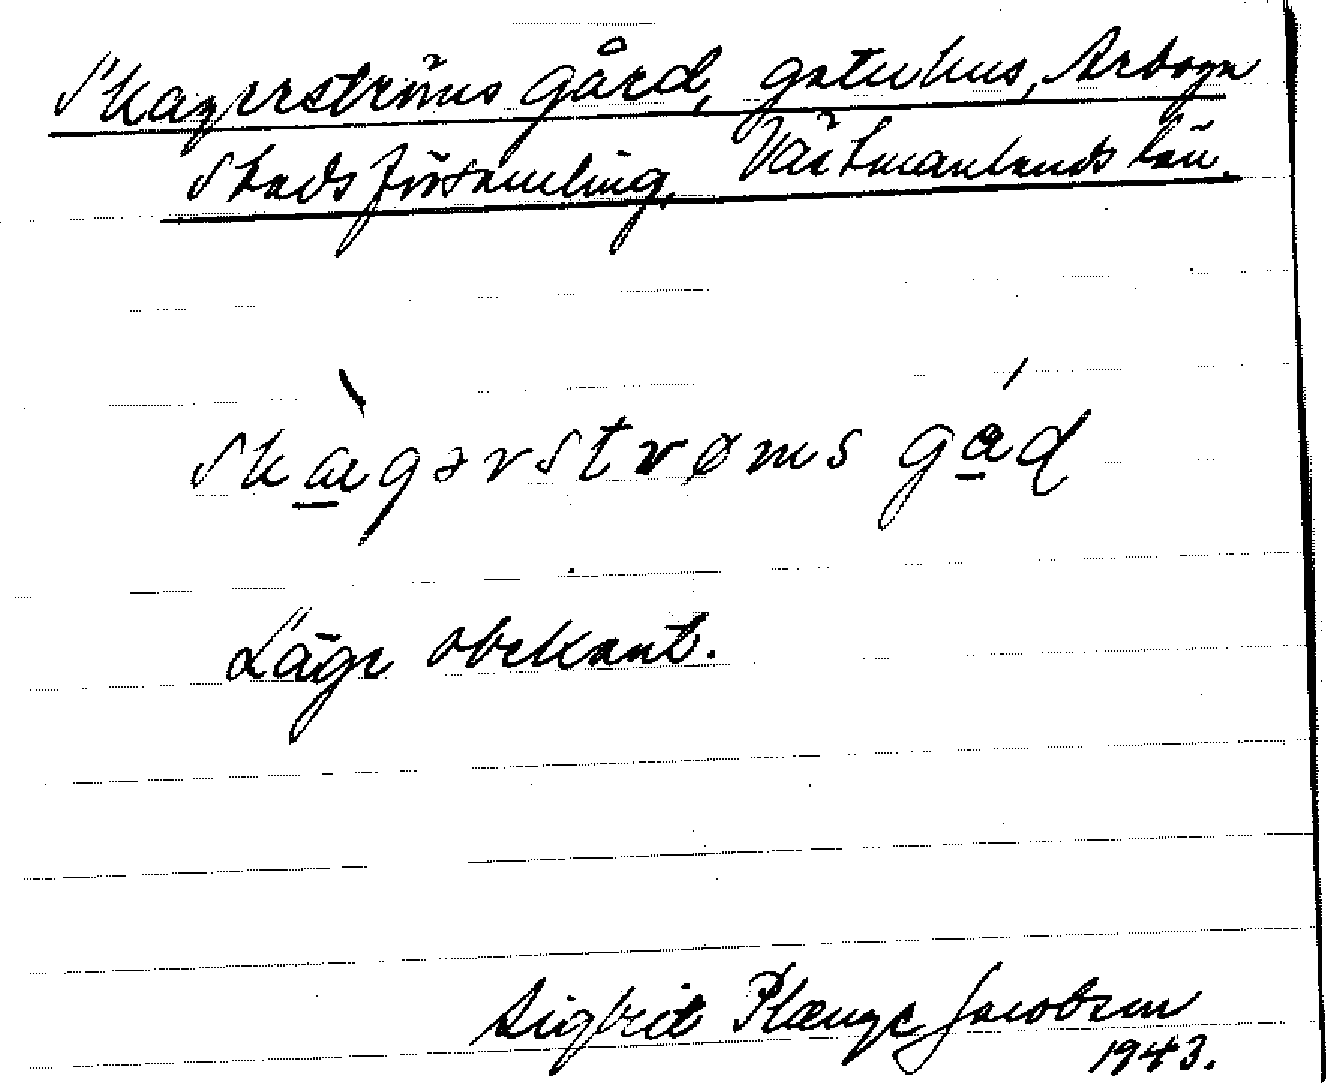 Skagerströms gård, gatuhus, Arboga
Stadsförsamling, Västmanlands län.
skàgərstrøms gá̱ḍ
Läge obekant.
Sigfrid Plenge Jacobsen
1943.